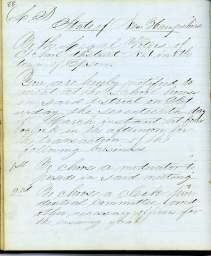 88
L. S.
State of New Hampshire
To the legal Voters of
School District No 1 in the
town of Epsom.
You are hereby notified to
meet at the School House
in said district on
the seventeenth day
of March instant at
o'clock in the afternoon for
the transaction of the
following business
1st To choose a moderator to
preside in said meeting
2nd To choose a clerk
Committee and
other necessary officers for
the ensuing year